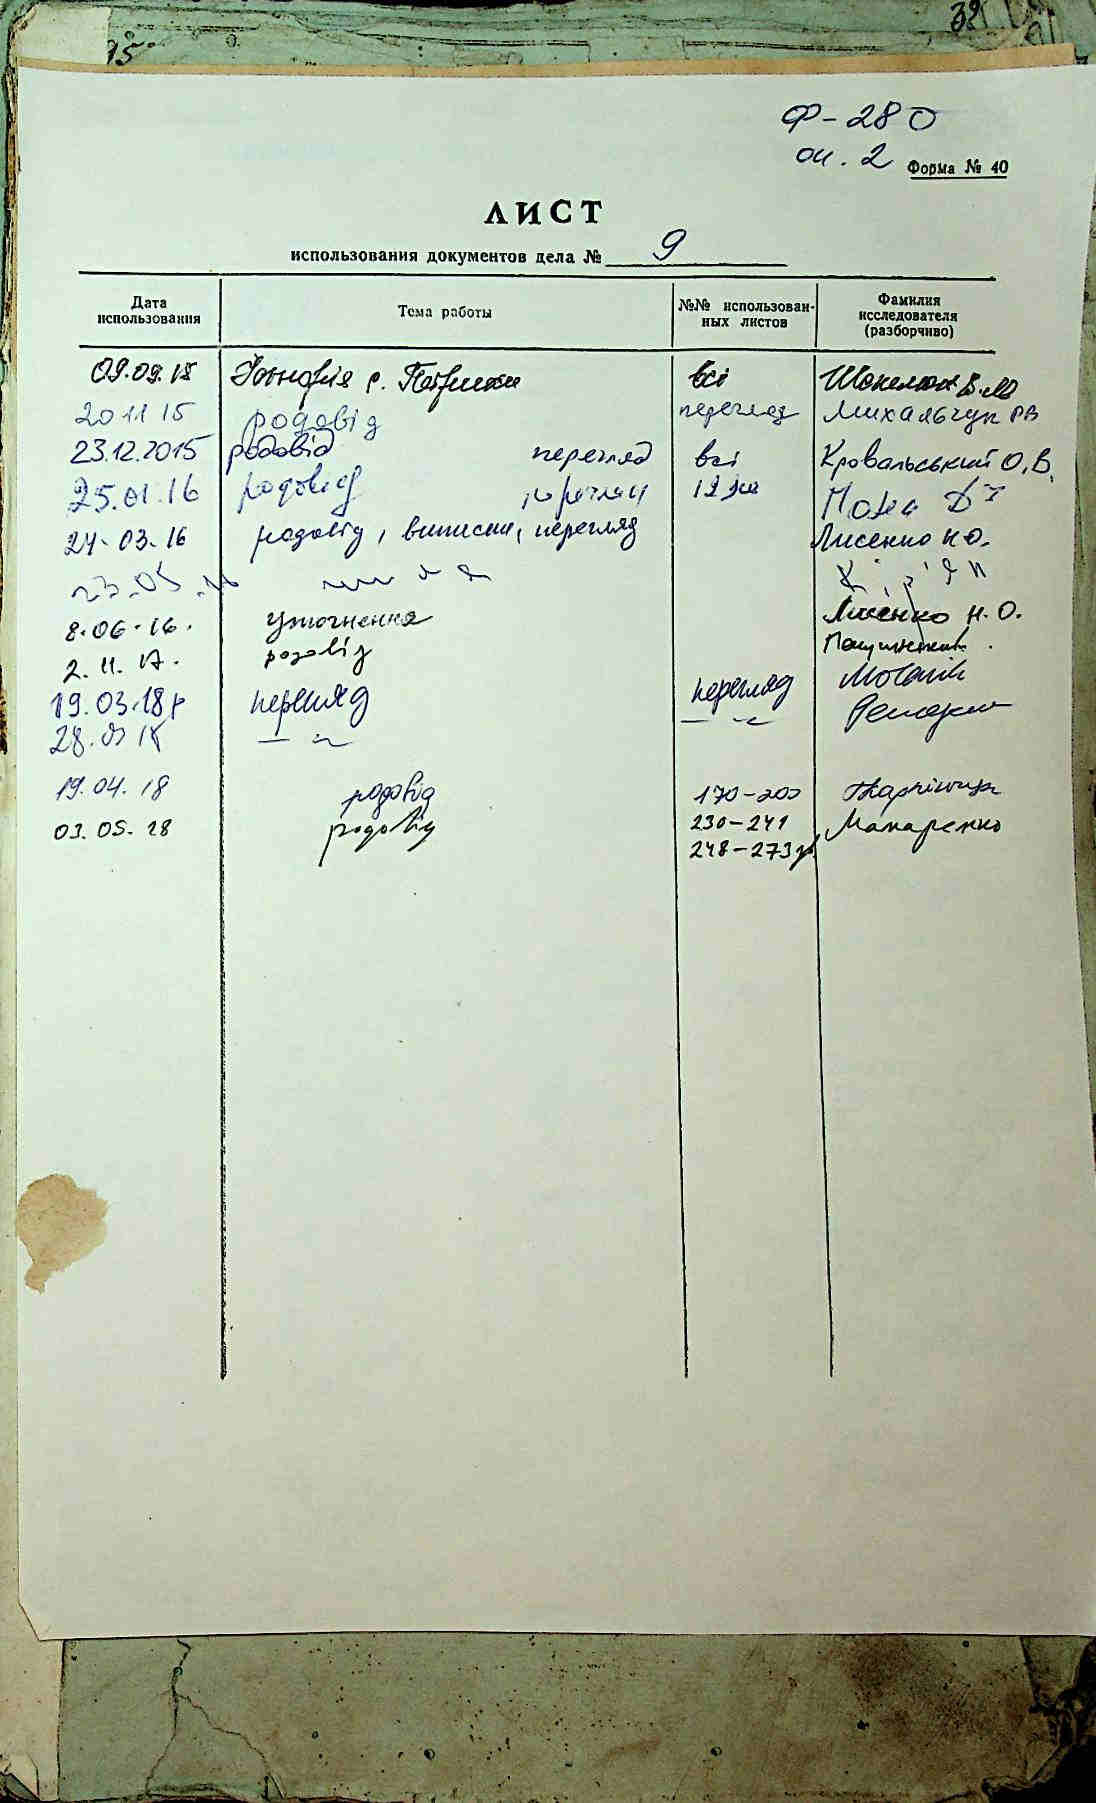 39
15
Ф-280
оп. 2
Форма № 40
ЛИСТ
использования документов дела № 9
Дата использования
Тема работы
№№ использован-
ных листов
Фамилия
исследователя
(разборчиво)
09.09.15 с. всі В.М
20 11 15 родовід перегляд Михальчук РВ
23.12.2015 родовід перегляд всі Кровальський О.В.
25.01.16 родовід перегляд
24.03.16 родовід, виписки, перегляд Лисенко Н.О.
8.06.16. уточнення Лисенко Н.О.
2.11.17. родовід
19.03.18р перегляд перегляд
28.03 18 — " — — " —
19.04.18 родовід 170-200
03.05.18 родовід 230-241 Макаренко
248-273